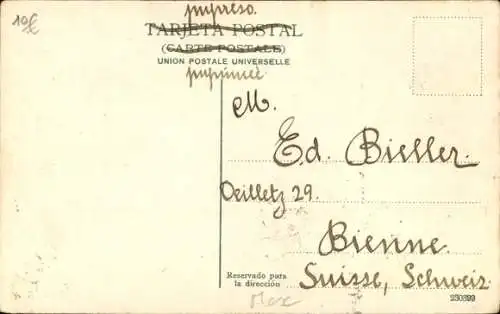 impreso.
10€
TARJETA POSTAL
(CARTE POSTALE)
UNION POSTALE UNIVERSELLE
M.
Ed. Bieller.
Oeilletz 29.
Bienne
Suisse, Schweiz
Reservado para
la dirección
250899